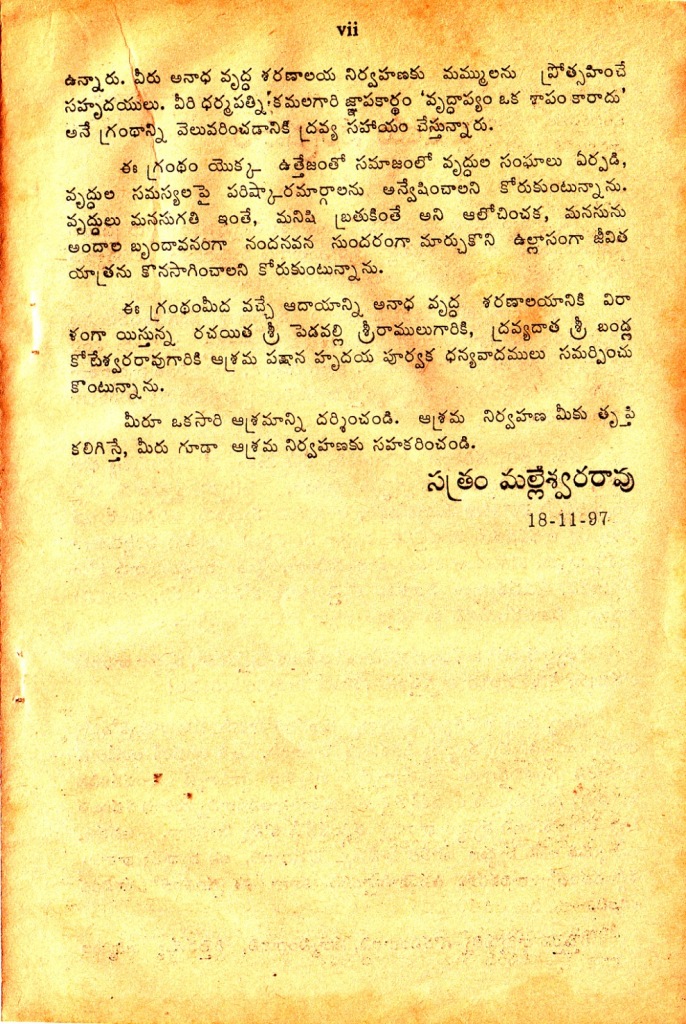 vii
ఉన్నారు. వీరు అనాధ వృద్ధ శరణాలయ నిర్వహణకు మమ్ములను ప్రోత్సహించే
సహృదయులు. వీరి ధర్మపత్ని కమలగారి జ్ఞాపకార్థం ‘వృద్ధాప్యం ఒక శాపం కారాదు’
అనే గ్రంథాన్ని వెలువరించడానికి ద్రవ్య సహాయం చేస్తున్నారు.
ఈ గ్రంథం యొక్క ఉత్తేజంతో సమాజంలో వృద్ధుల సంఘాలు ఏర్పడి,
వృద్ధుల సమస్యలపై పరిష్కారమార్గాలను అన్వేషించాలని కోరుకుంటున్నాను.
వృద్ధులు మనసుగతి ఇంతే, మనిషి బ్రతుకింతే అని ఆలోచించక, మనసును
అందాల బృందావనంగా నందనవన సుందరంగా మార్చుకొని ఉల్లాసంగా జీవిత
యాత్రను కొనసాగించాలని కోరుకుంటున్నాను.
ఈ గ్రంథంమీద వచ్చే ఆదాయాన్ని అనాధ వృద్ధ శరణాలయానికి విరా
ళంగా యిస్తున్న రచయిత శ్రీ పెడవల్లి శ్రీరాములుగారికి, ద్రవ్యదాత శ్రీ బండ్ల
కోటేశ్వరరావుగారికి ఆశ్రమ పషాన హృదయ పూర్వక ధన్యవాదములు సమర్పించు
కొంటున్నాను.
మీరూ ఒకసారి ఆశ్రమాన్ని దర్శించండి. ఆశ్రమ నిర్వహణ మీకు తృప్తి
కలిగిస్తే, మీరు గూడా ఆశ్రమ నిర్వహణకు సహకరించండి.
సత్రం మల్లేశ్వరరావు
18-11-97